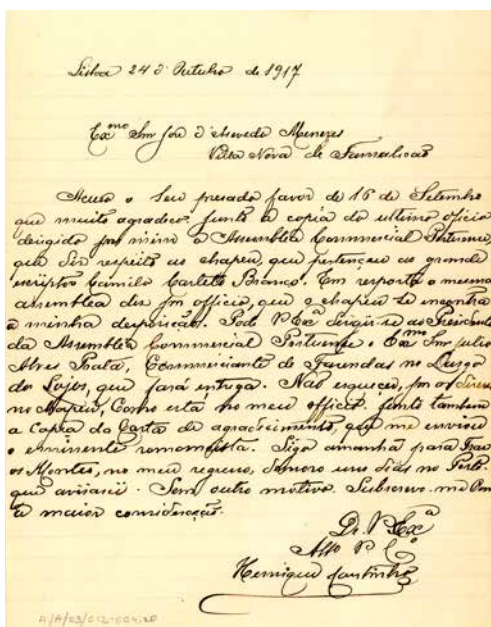 Lisboa 24 d'Outubro de 1917
Exmo Snr José d'Azevedo Menezes
Villa Nova de Famalicão
Accuso o seu presado favor de 16 de Setembro
que muito agradeço. Junto a copia do ultimo officio
dirigido por mim a Assemblêa Commercial Portuense,
que diz respeito ao chapeu, que pertenceu ao grande
escriptor Camilo Castello Branco. Em resposta a mesma
assemblea diz por officio, que o chapeu se encontra
á minha desposição. Pode V. Exª dirigir-se ao Presidente
da Assemblêa Commercial Portuense o Exmo Snr Julio
Alves Commerciante de Fazendas no Largo
dos Loyos, que fará entrega. Não esqueceu, por os
no chapeu, como está no meu officio. Junto tambem
a Copia da Carta de agradecimento, que me enviou
o eminente romancista. Sigo amanhã para Traz
os Montes, no meu regresso, demoro uns dias no Porto
que avisarei. Sem outro motivo. Subscrevo-me Com
a maior consideração.
De V. Exª
Atto V.
Henrique Coutinho